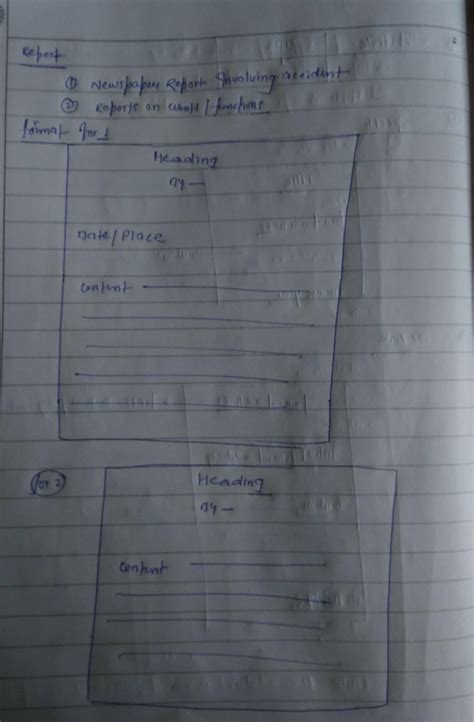 Report
① Newspaper Report Involving accident
② Reports on events / functions
format for 1
Heading
By —
Date/Place
Content
for 2
Heading
By —
Content